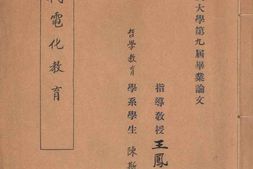 大學第九屆畢業論文
指導教授 王鳳
哲學教育 學系學生 陳
電化教育